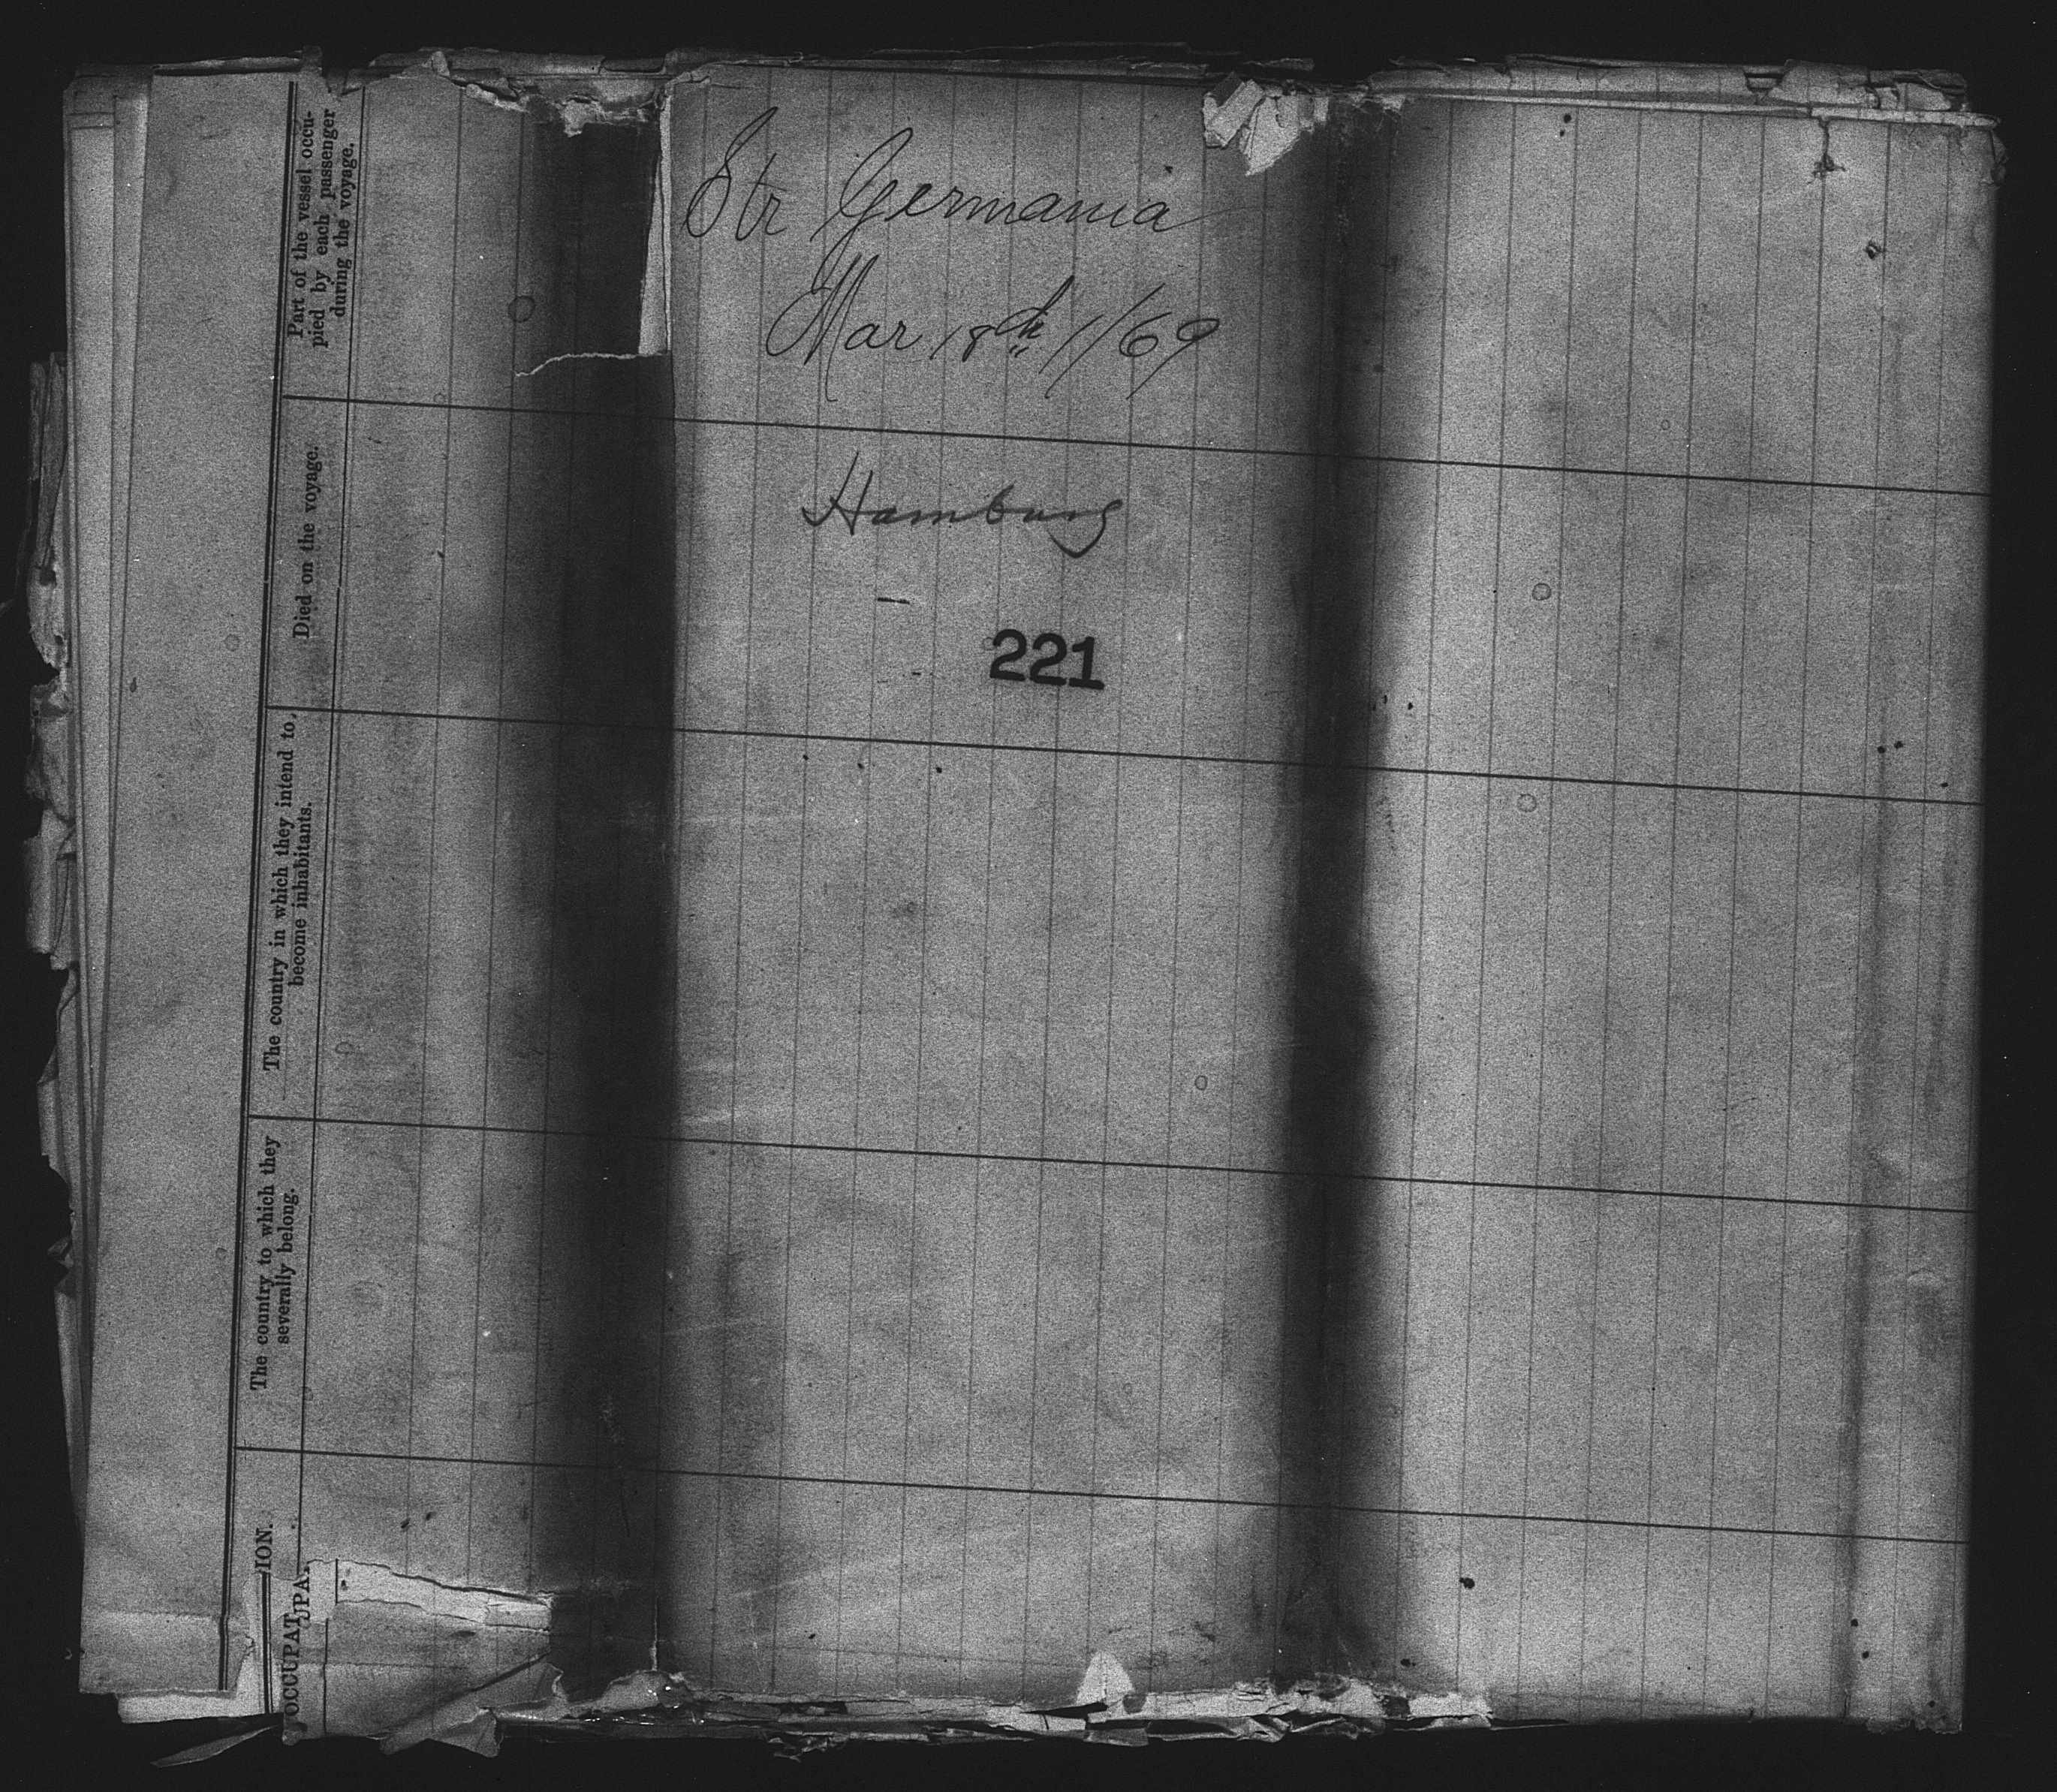 Str Germania
Mar 18th 1/69
Hamburg
221
Part of the vessel occu-
pied by each passenger
during the voyage.
Died on the voyage.
The country in which they intend to
become inhabitants.
The country to which they
severally belong.
ION.
OCCUPAT
UPA